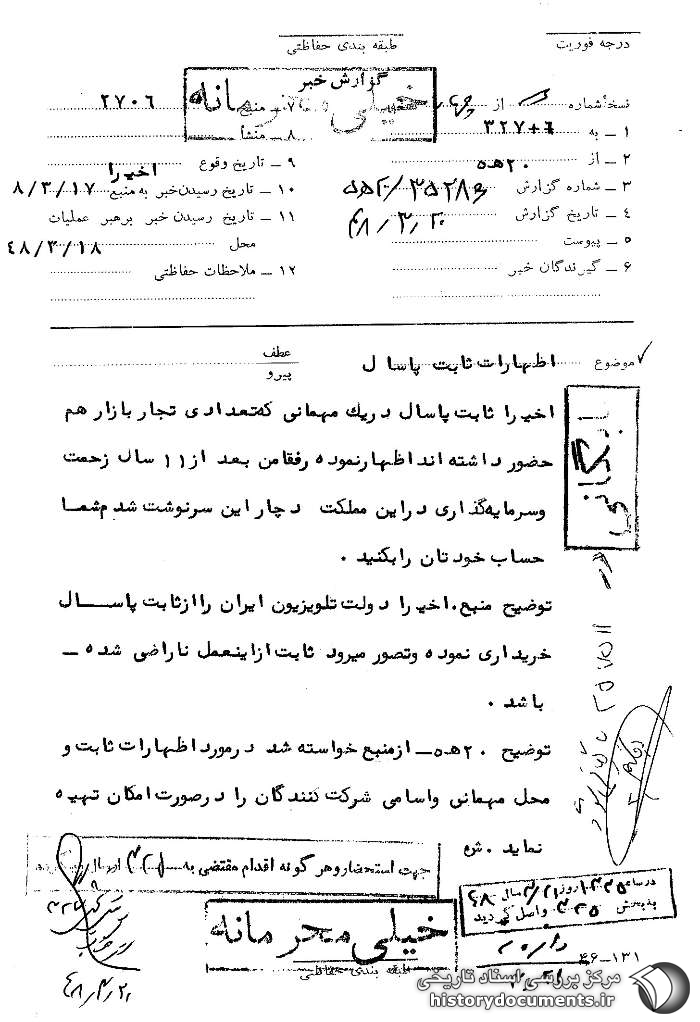 درجه فوریت
طبقه بندی حفاظتی
گزارش خبر
خیلی محرمانه
نسخهٔ شماره از
۱ ــ به ۳۲۷+۶
۲ ــ از ۲۰ هـ ۵
۳ ــ شماره گزارش
۴ ــ تاریخ گزارش ۴۸/۳/۲۰
۵ ــ پیوست
۶ ــ گیرندگان خبر
۷ ــ منبع ۲۷۰۶
۸ ــ منشأ
۹ ــ تاریخ وقوع اخیرا
۱۰ ــ تاریخ رسیدن خبر به منبع ۸/۳/۱۷
۱۱ ــ تاریخ رسیدن خبر برهبر عملیات
محل ۴۸/۳/۱۸
۱۲ ــ ملاحظات حفاظتی
موضوع اظهارات ثابت پاسال
عطف
پیرو
اخیرا ثابت پاسال دریک مهمانی که تعدادی تجار بازار هم
حضور داشته اند اظهارنموده رفقا من بعد از ۱۱ سال زحمت
وسرمایه گذاری دراین مملکت دچار این سرنوشت شدم شما
حساب خودتان رابکنید .
توضیح منبع . اخیرا دولت تلویزیون ایران رااز ثابت پاسـال
خریداری نموده وتصور میرود ثابت ازاینعمل ناراضی شده ــ
باشد .
توضیح ۲۰ هـ ۵ــ ازمنبع خواسته شد درمورد اظهارات ثابت و
محل مهمانی واسامی شرکت کنندگان را درصورت امکان تهیه
نماید . ش
بایگانی شود
جهت استحضار وهر گونه اقدام مقتضی به ارسال
درساعت روز سال ۴۸
به بخش ۳۳۵ واصل گردید
خیلی محرمانه
طبقه بندی حفاظتی
۴۶ــ۱۳۱
۴۸/۳/۲۰
مرکز بررسی اسناد تاریخی
historydocuments.ir